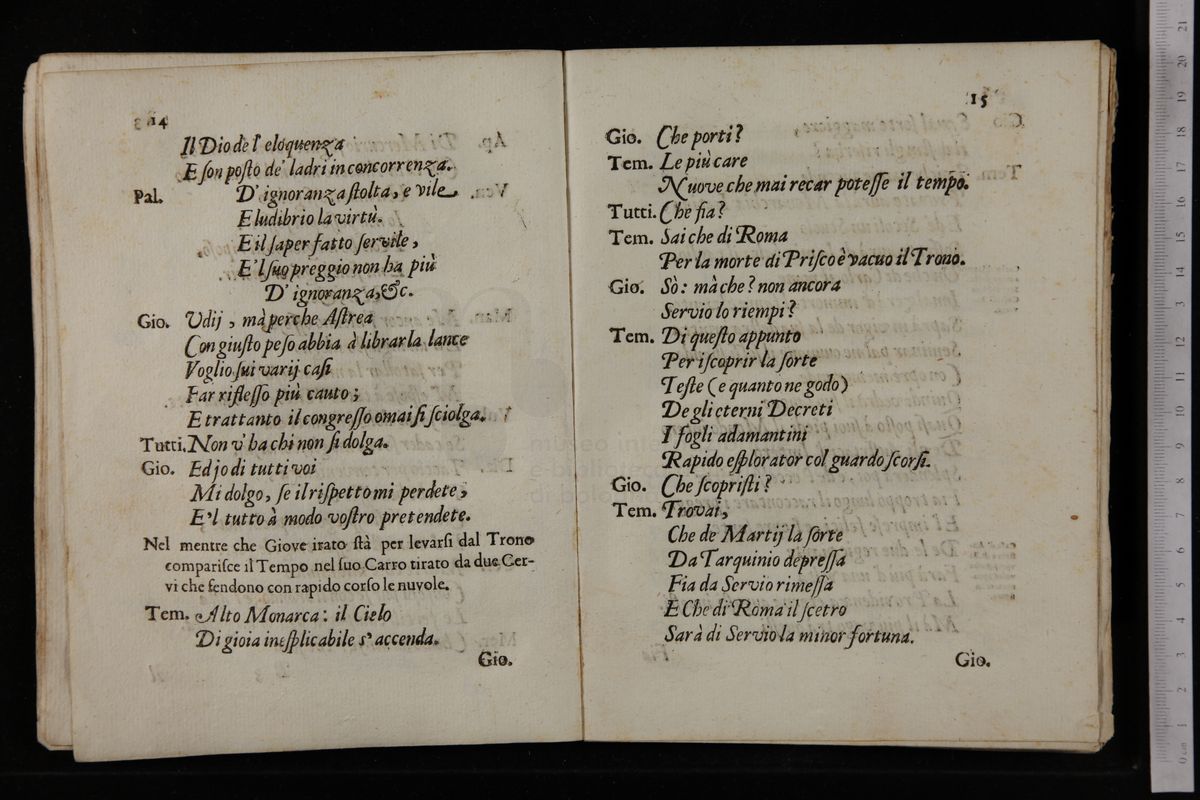 14
Il Dio de l' eloquenza
E son posto de' ladri in concorrenza.
Pal. D' ignoranza ſtolta, e vile
E ludibrio la virtù.
E il ſaper fatto ſervile,
E'l ſuo preggio non ha più
D' ignoranza, &c.
Gio. Udij, mà perche Aſtrea
Con giuſto peſo abbia à librar la lance
Voglio ſui varij caſi
Far rifleſſo più cauto;
E trattanto il congreſſo omai ſi ſciolga.
Tutti. Non v' ha chi non ſi dolga.
Gio. Ed jo di tutti voi
Mi dolgo, ſe il riſpetto mi perdete,
E'l tutto à modo voſtro pretendete.
Nel mentre che Giove irato ſtà per levarſi dal Trono
compariſce il Tempo nel ſuo Carro tirato da due Cer-
vi che fendono con rapido corſo le nuvole.
Tem. Alto Monarca: il Cielo
Di gioia ineſplicabile s' accenda.
Gio.
15
Gio. Che porti?
Tem. Le più care
Nuove che mai recar poteſſe il tempo.
Tutti. Che fia?
Tem. Sai che di Roma
Per la morte di Priſco è vacuo il Trono.
Gio. Sò: mà che? non ancora
Servio lo riempi?
Tem. Di queſto appunto
Per iſcoprir la ſorte
Teſte (e quanto ne godo)
De gli eterni Decreti
I fogli adamantini
Rapido eſplorator col guardo ſcorſi.
Gio. Che ſcopriſti?
Tem. Trovai,
Che de Martij la ſorte
Da Tarquinio depreſſa
Fia da Servio rimeſſa
E Che di Roma il ſcetro
Sarà di Servio la minor fortuna.
Gio.